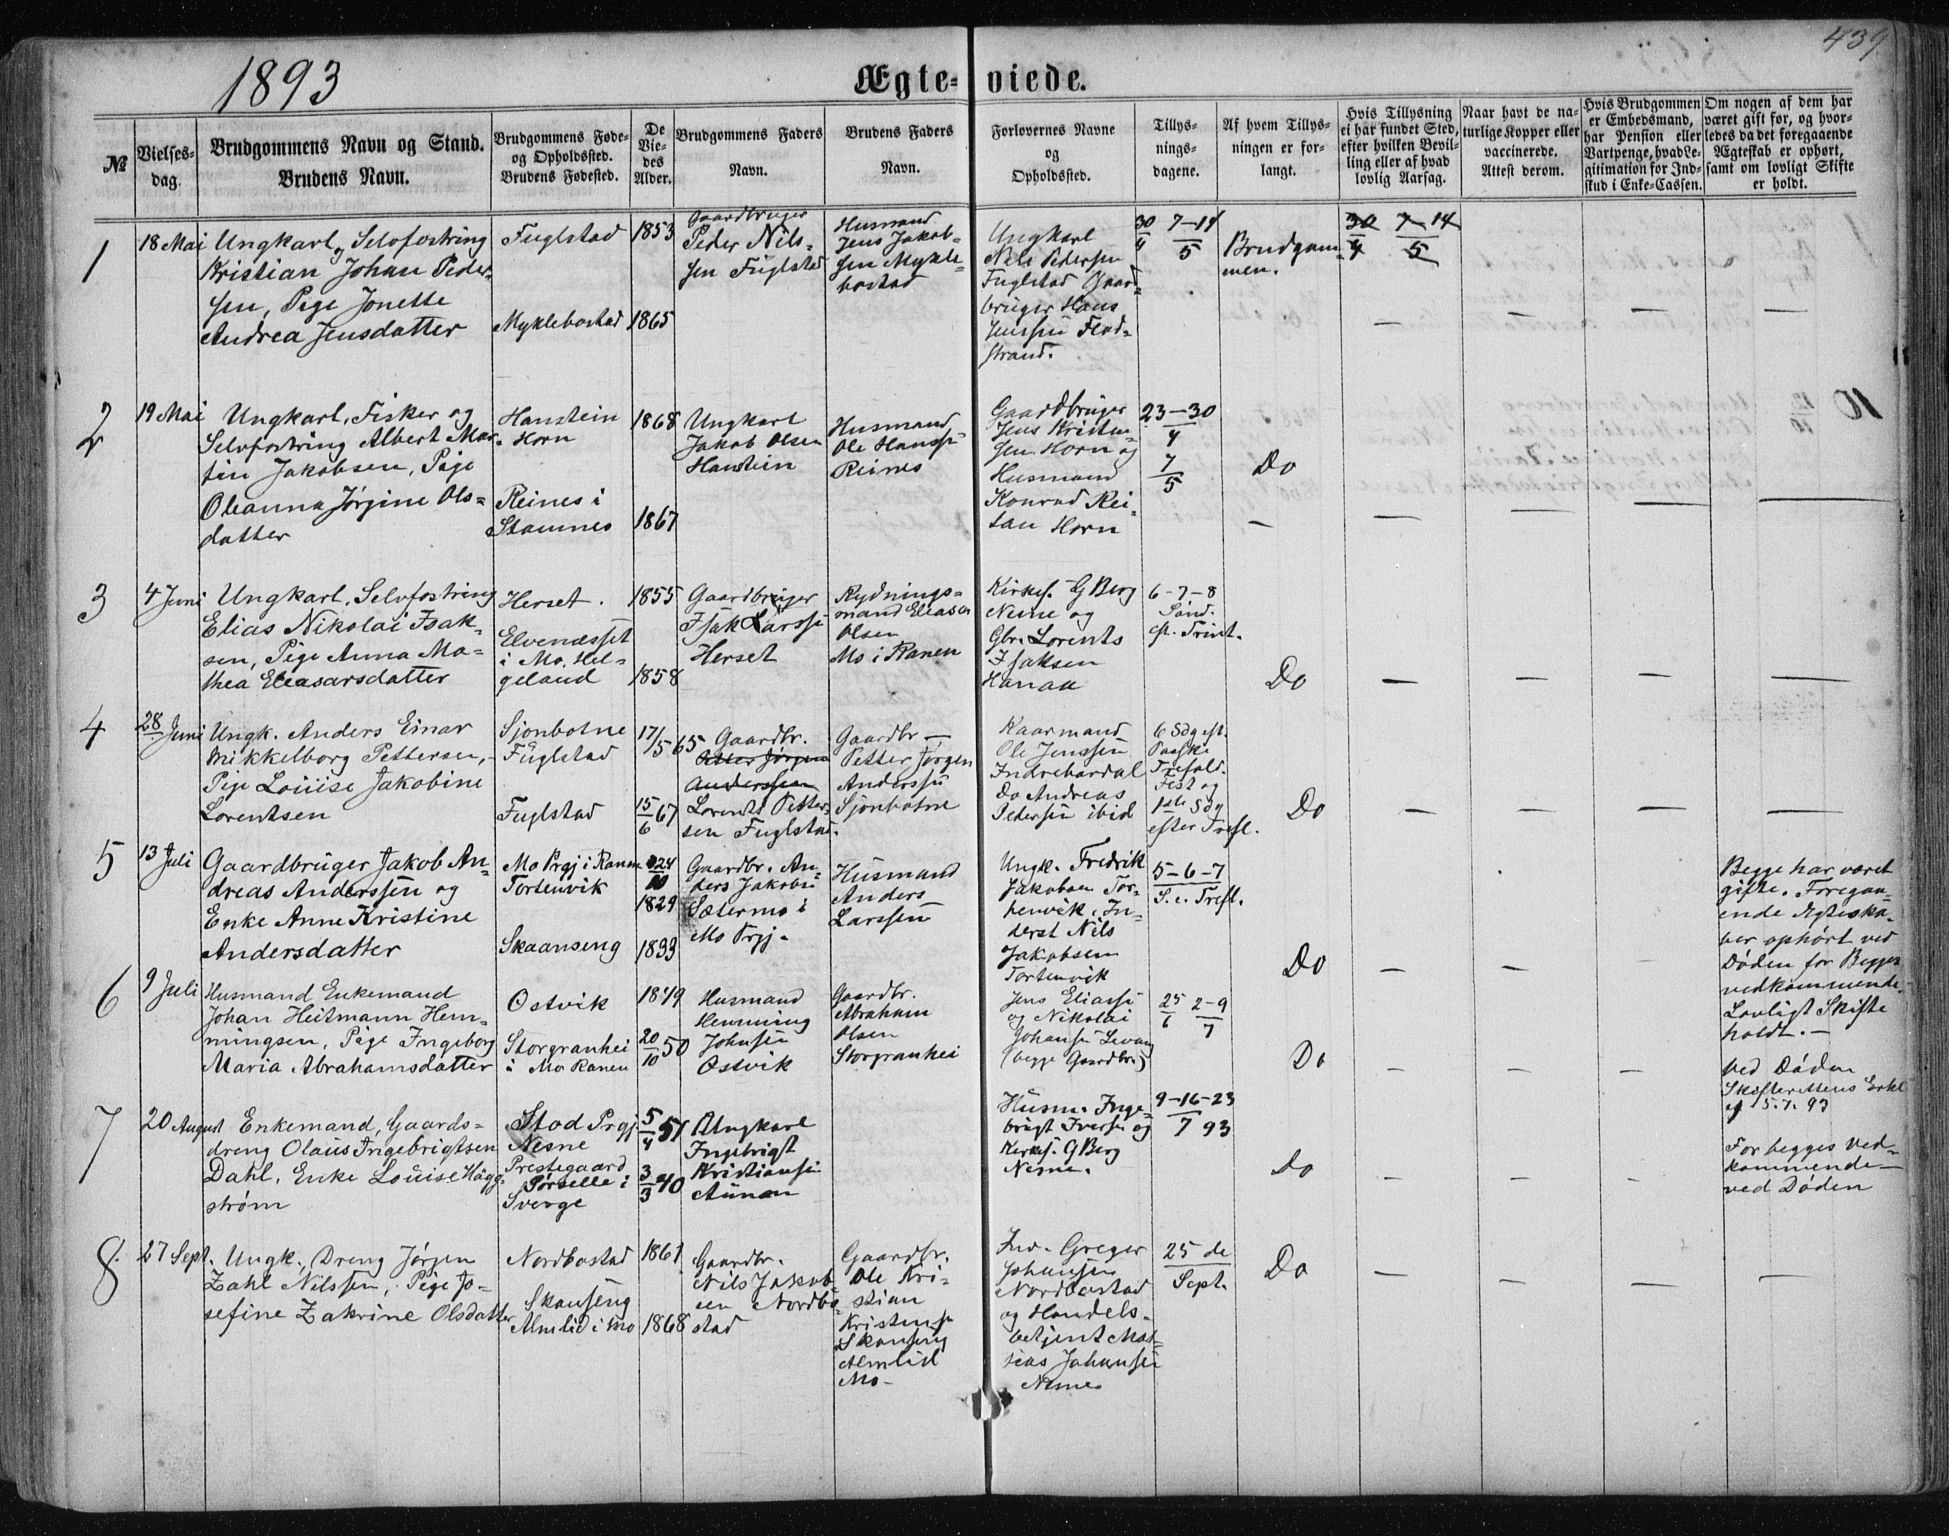 439
1893
Ægte- viede.
№
Vielses-
dag.
Brudgommens Navn og Stand.
Brudens Navn.
Brudgommens Føde-
og Opholdssted.
Brudens Fødested.
De
Vie-
des
Alder.
Brudgommens Faders
Navn.
Brudens Faders
Navn.
Forlovernes Navne
og
Opholdssted.
Tillys-
nings-
dagene.
Af hvem Tillys-
ningen er for-
langt.
Hvis Tillysning
ei har fundet Sted,
efter hvilken Bevil-
ling eller af hvad
lovlig Aarsag.
Naar havt de na-
turlige Kopper eller
vaccinerede.
Attest derom.
Hvis Brudgommen
er Embedsmand,
har Pension eller
Vartpenge, hvad Le-
gitimation for Ind-
skud i Enke-Cassen.
Om nogen af dem har
været gift før, og hvor-
ledes da det foregaaende
Ægteskab er ophørt,
samt om lovligt Skifte
er holdt.
1
18 Mai
Ungkarl og Selvfostring
Kristian Johan Peder-
sen, Pige Jonette
Andrea Jensdatter
Fuglstad
Myklebostad
1853
1865
Gaardbruger
Peder Nils-
sen Fuglstad
Husmand
Jens Jakob-
sen Mykle-
bostad
Ungkarl
Nils Pedersen
Fuglstad Gaard-
bruger Hans
Jenssen Flod-
strand.
30/4 7-14/5
Brudgom-
men.
30/4 7-14/5
— — — —
2
19 Mai
Ungkarl, Fisker og
Selvfostring Albert Mar-
tin Jakobsen, Pige
Oleanna Jørgine Ols-
datter
Hanstein
Horn
Reines i
Stamnes
1868
1867
Ungkarl
Jakob Olsen
Hanstein
Husmand
Ole Hanss.
Reines
Gaardbruger
Jens Kristen-
sen Horn og
Husmand
Konrad Rei-
tan Horn
23-30/4
7/5
Do
— — — — —
10
3
4 Juni
Ungkarl, Selvfostring
Elias Nikolai Isak-
sen, Pige Anna Ma-
thea Eleasarsdatter
Herset.
Elvenæsset
i Mo, Hel-
geland
1855
1858
Gaardbruger
Isak Larss.
Herset
Rydnings-
mand Eleasar
Olsen
Mo i Ranen
Kirkes. G Berg
Nesne og
Gbr. Lorents
Isaksen
Hanaa
6-7-8
Sønd.
eft. Trint.
Do
— — — —
4
28 Juni
Ungk. Anders Einar
Mikkelborg Pettersen,
Pige Louise Jakobine
Lorentsen
Sjonbotne
Fuglstad
Fuglstad
17/5 65
15/6 67
Gaardbr.
Petter Jørgen
Anderssen
Lorents Petter-
sen Fuglstad.
Gaardbr —
Petter Jørgen
Anderssen
Sjonbotne
Kaarmand
Ole Jenssen
Indrehardal
Do Andreas
Pedersen ibid
6 Sdg eft.
Paaske
Trefold.
Fest og
1ste Sdg
efter Trefl.
Do
— — — —
5
13 Juli
Gaardbruger Jakob An-
dreas Anderssen og
Enke Anne Kristine
Andersdatter
Mo Prgj i Ranen
Tortenvik
Skaanseng
24/10
1829
1833
Gaardbr. An-
ders Jakobs.
Sætermo i
Mo Prgj.
Husmand
Anders
Larssen
Ungk. Fredrik
Jakobsen Tor-
tenvik, In-
derst Nils
Jakobsen
Tortenvik
5-6-7
S. e. Trefl.
Do
— — —
Begge har været
gifte. Foregaa-
ende Ægteska-
ber ophørt ved
Døden for Begges
vedkommende.
Lovligt Skifte
holdt. —
6
9 Juli
Husmand Enkemand
Johan Heitmann Hem-
mingsen, Pige Ingeborg
Maria Abrahamsdatter
Ostvik
Storgranhei
i Mo Ranen
1849
20/10 50
Husmand
Hemming
Johnsen
Ostvik
Gaardbr.
Abraham
Olsen
Storgranhei
Jens Eliass.
og Nikolai
Johansen Levang
(begge Gaardbr.)
25/6 2-9/7
Do
— — —
Ved Døden
Skifterettens Erkl
af 5.7.93
7
20 August
Enkemand, Gaards-
dreng Olaus Ingebrigtsen
Dahl, Enke Louise Hägg-
strøm
Stod Prgj
Nesne
Prestegaard
Sørselle i
Sverge
5/4 51
3/3 40
Ungkarl
Ingebrigt
Kristiansen
Aunan
Husm. Inge-
brigt Iversen og
Kirkes. G Berg
Nesne.
9-16-23
7 93
Do
— — —
For begges Ved-
kommende
ved Døden
8
27 Sept.
Ungk., Dreng Jørgen
Zahl Nilssen, Pige Jo-
sefine Zakrine Olsdatter
Nordbostad
Skanseng
Almlid i Mo
1861
1868
Gaardbr.
Nils Jakob-
sen Nordbo-
stad
Gaardbr.
Ole Kri-
stian
Kristens.
Skanseng
Almlid
Mo
Ind. Greger
Johansen
Nordbostad
og Handels-
betjent Mat-
ias Johansen
Nesne
25 de
Sept.
Do
— — — —